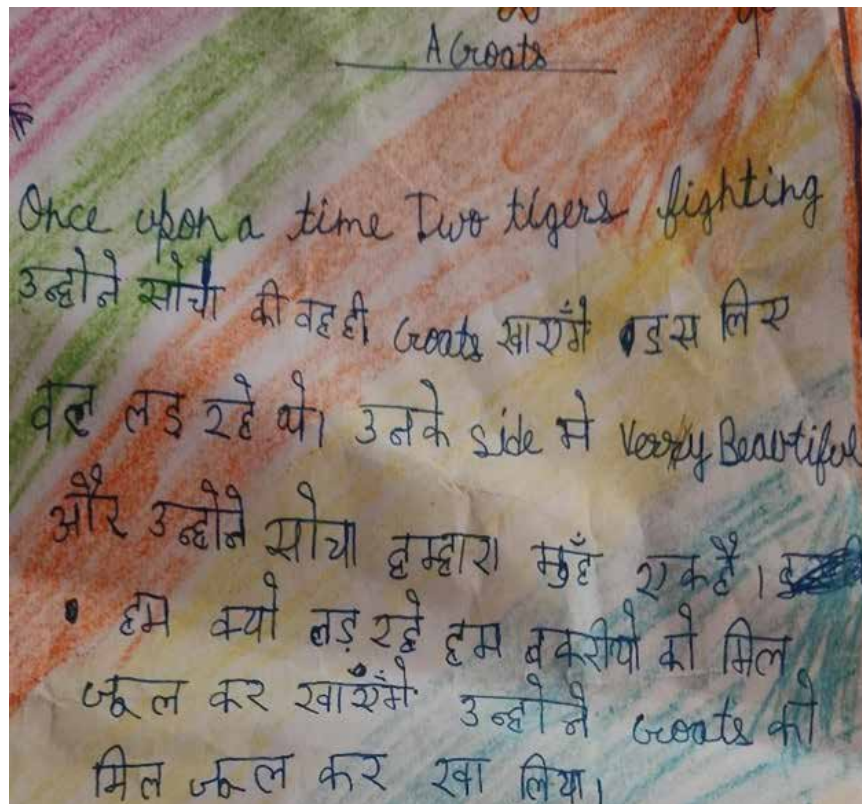 A Goats
Once upon a time Two tigers fighting
उन्होने सोचा की वह ही Goats खाएँगे इस लिए
वह लड रहे थे। उनके side मे Verry Beautiful
और उन्होने सोचा हम्हारा मुँह एक है।
हम क्यो लड़ रहे हम बकरीयो को मिल
जूल कर खाएँगे उन्होने Goats को
मिल जूल कर खा लिया।